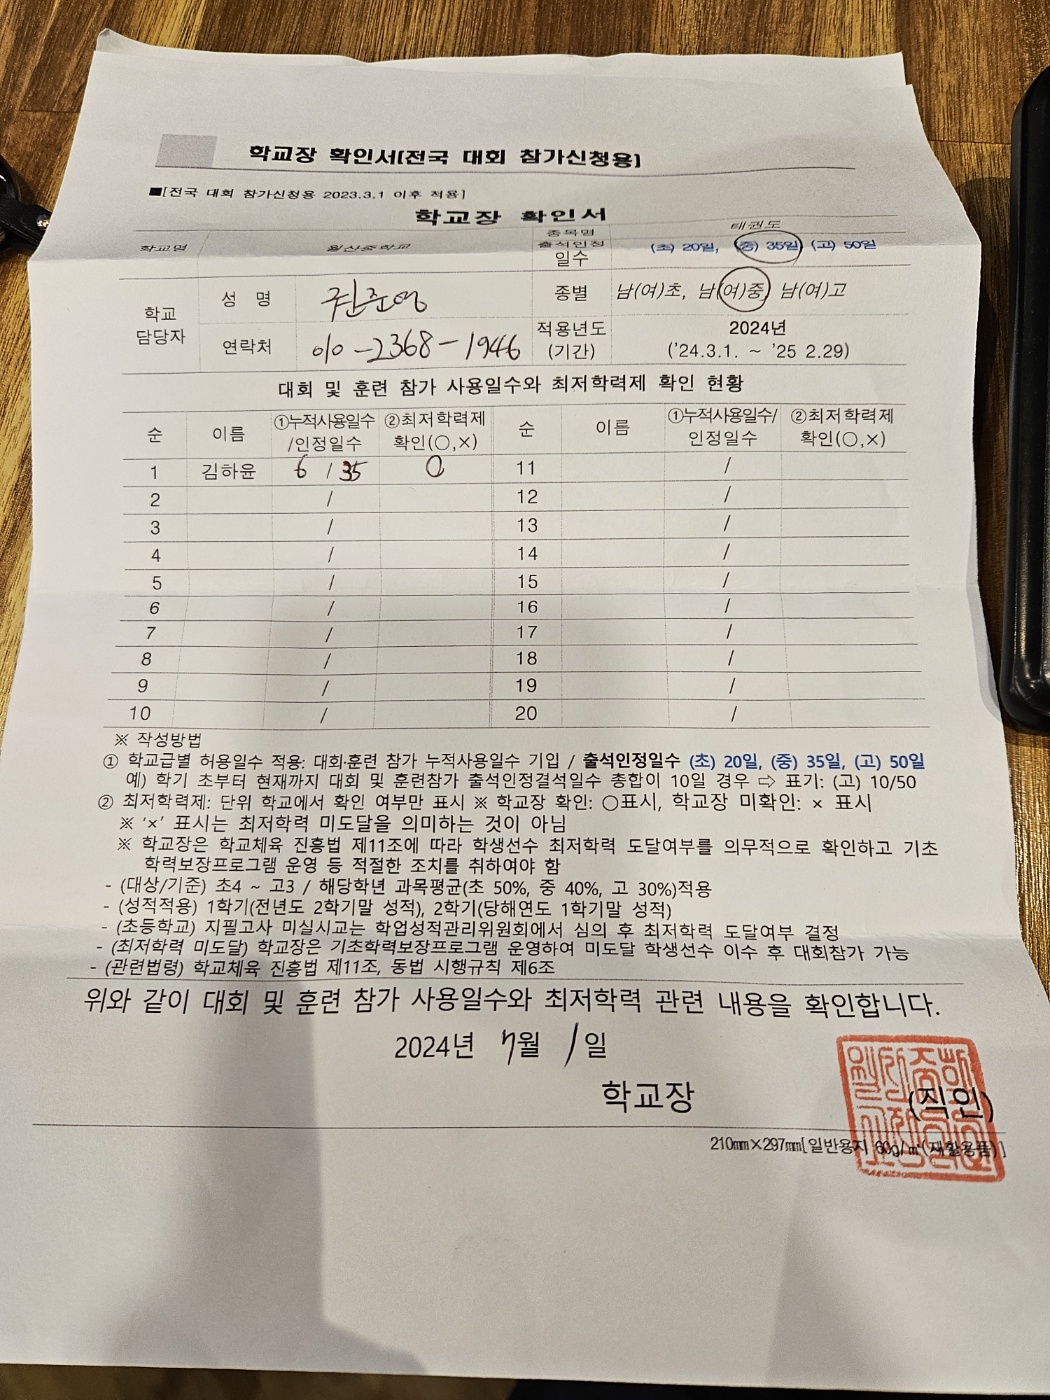 학교장 확인서[전국 대회 참가신청용]
■[전국 대회 참가신청용 2023.3.1 이후 적용]
학교장 확인서
학교명 월산중학교 종목명 태권도
출석인정 일수 (초) 20일, (중) 35일, (고) 50일
학교 담당자 성 명 권준영 종별 남(여)초, 남(여)중, 남(여)고
연락처 010-2368-1946 적용년도 (기간) 2024년 ('24.3.1. ~ '25 2.29)
대회 및 훈련 참가 사용일수와 최저학력제 확인 현황
순 이름 ①누적사용일수/인정일수 ②최저학력제 확인(○,×) 순 이름 ①누적사용일수/인정일수 ②최저학력제 확인(○,×)
1 김하윤 6 / 35 O 11 /
2 / 12 /
3 / 13 /
4 / 14 /
5 / 15 /
6 / 16 /
7 / 17 /
8 / 18 /
9 / 19 /
10 / 20 /
※ 작성방법
① 학교급별 허용일수 적용: 대회·훈련 참가 누적사용일수 기입 / 출석인정일수 (초) 20일, (중) 35일, (고) 50일
예) 학기 초부터 현재까지 대회 및 훈련참가 출석인정결석일수 총합이 10일 경우 ⇨ 표기: (고) 10/50
② 최저학력제: 단위 학교에서 확인 여부만 표시 ※ 학교장 확인: ○표시, 학교장 미확인: × 표시
※ '×' 표시는 최저학력 미도달을 의미하는 것이 아님
※ 학교장은 학교체육 진흥법 제11조에 따라 학생선수 최저학력 도달여부를 의무적으로 확인하고 기초
학력보장프로그램 운영 등 적절한 조치를 취하여야 함
- (대상/기준) 초4 ~ 고3 / 해당학년 과목평균(초 50%, 중 40%, 고 30%)적용
- (성적적용) 1학기(전년도 2학기말 성적), 2학기(당해연도 1학기말 성적)
- (초등학교) 지필고사 미실시교는 학업성적관리위원회에서 심의 후 최저학력 도달여부 결정
- (최저학력 미도달) 학교장은 기초학력보장프로그램 운영하여 미도달 학생선수 이수 후 대회참가 가능
- (관련법령) 학교체육 진흥법 제11조, 동법 시행규칙 제6조
위와 같이 대회 및 훈련 참가 사용일수와 최저학력 관련 내용을 확인합니다.
2024년 7월 1일
학교장 (직인)
210㎜×297㎜[일반용지 60g/㎡(재활용품)]